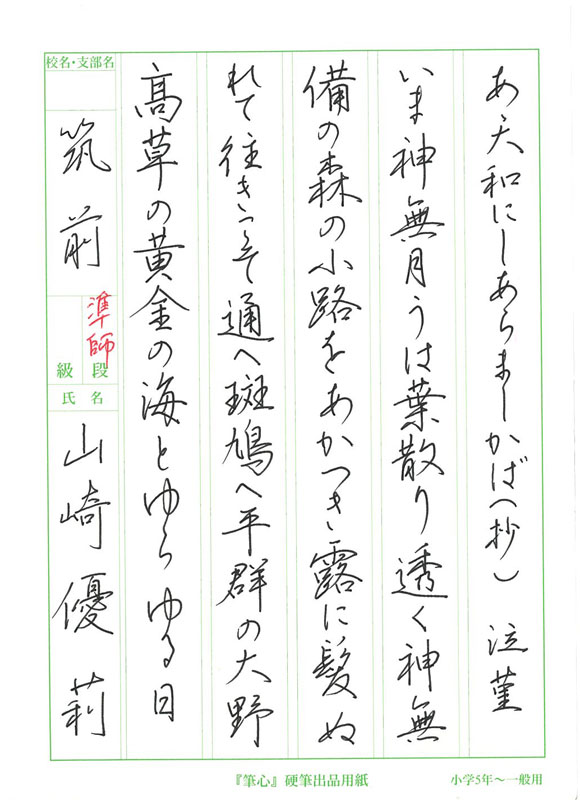 あゝ大和にしあらましかば(抄) 泣菫
いま神無月うは葉散り透く神無
備の森の小路をあかつき露に髪ぬ
れて往きこそ通へ斑鳩へ平群の大野
高草の黄金の海とゆらゆる日
校名・支部名
筑前
準師
段
級
氏名
山崎優莉
『筆心』硬筆出品用紙
小学5年〜一般用